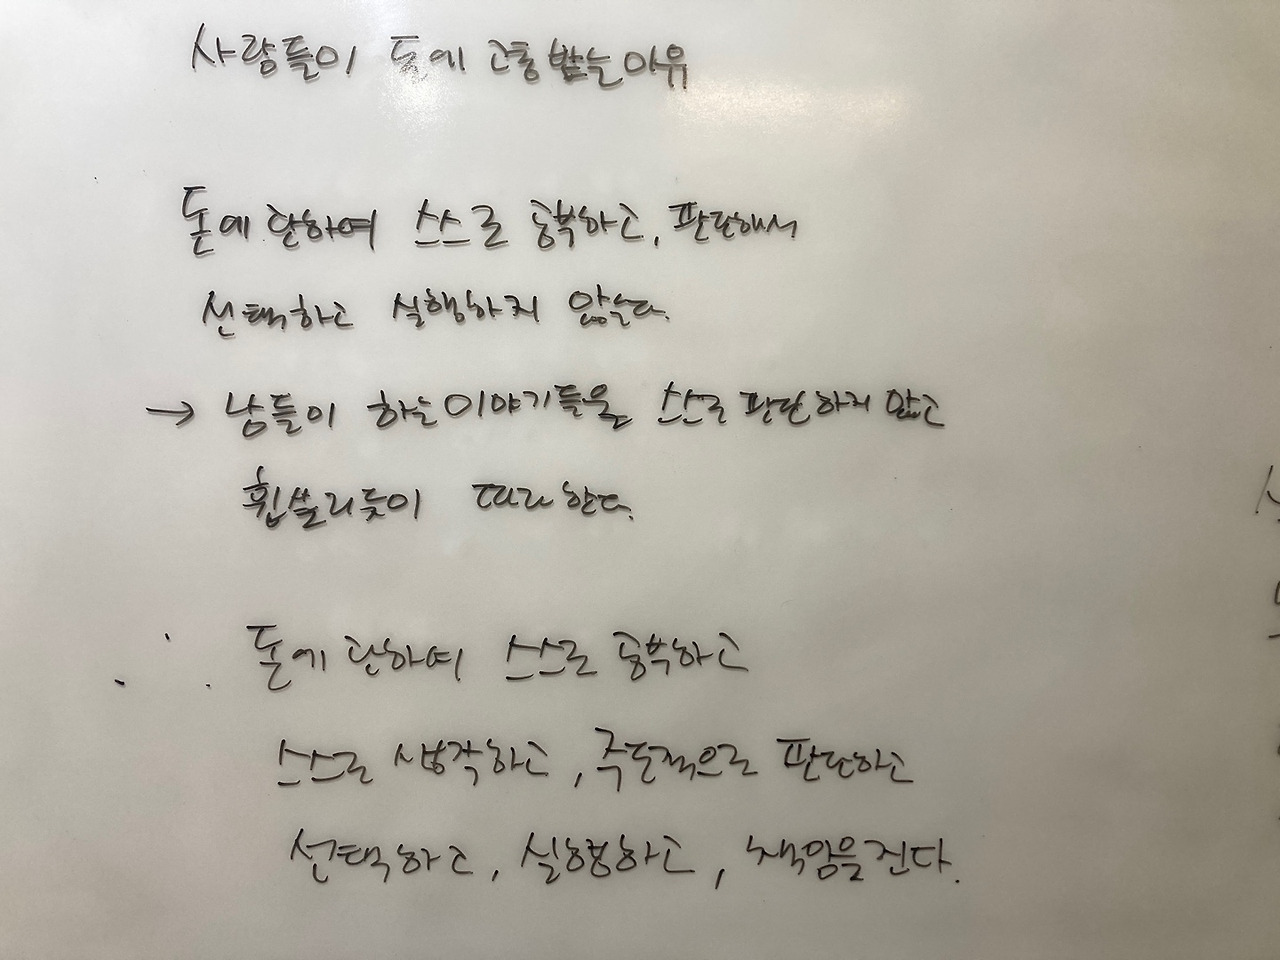 사람들이 돈에 고통 받는 이유
돈에 관하여 스스로 공부하고, 판단해서
선택하고 실행하지 않는다.
→ 남들이 하는 이야기들을 스스로 판단하지 않고
휩쓸리듯이 따라 한다.
∴ 돈에 관하여 스스로 공부하고
스스로 생각하고, 주도적으로 판단하고
선택하고, 실행하고, 책임을 진다.